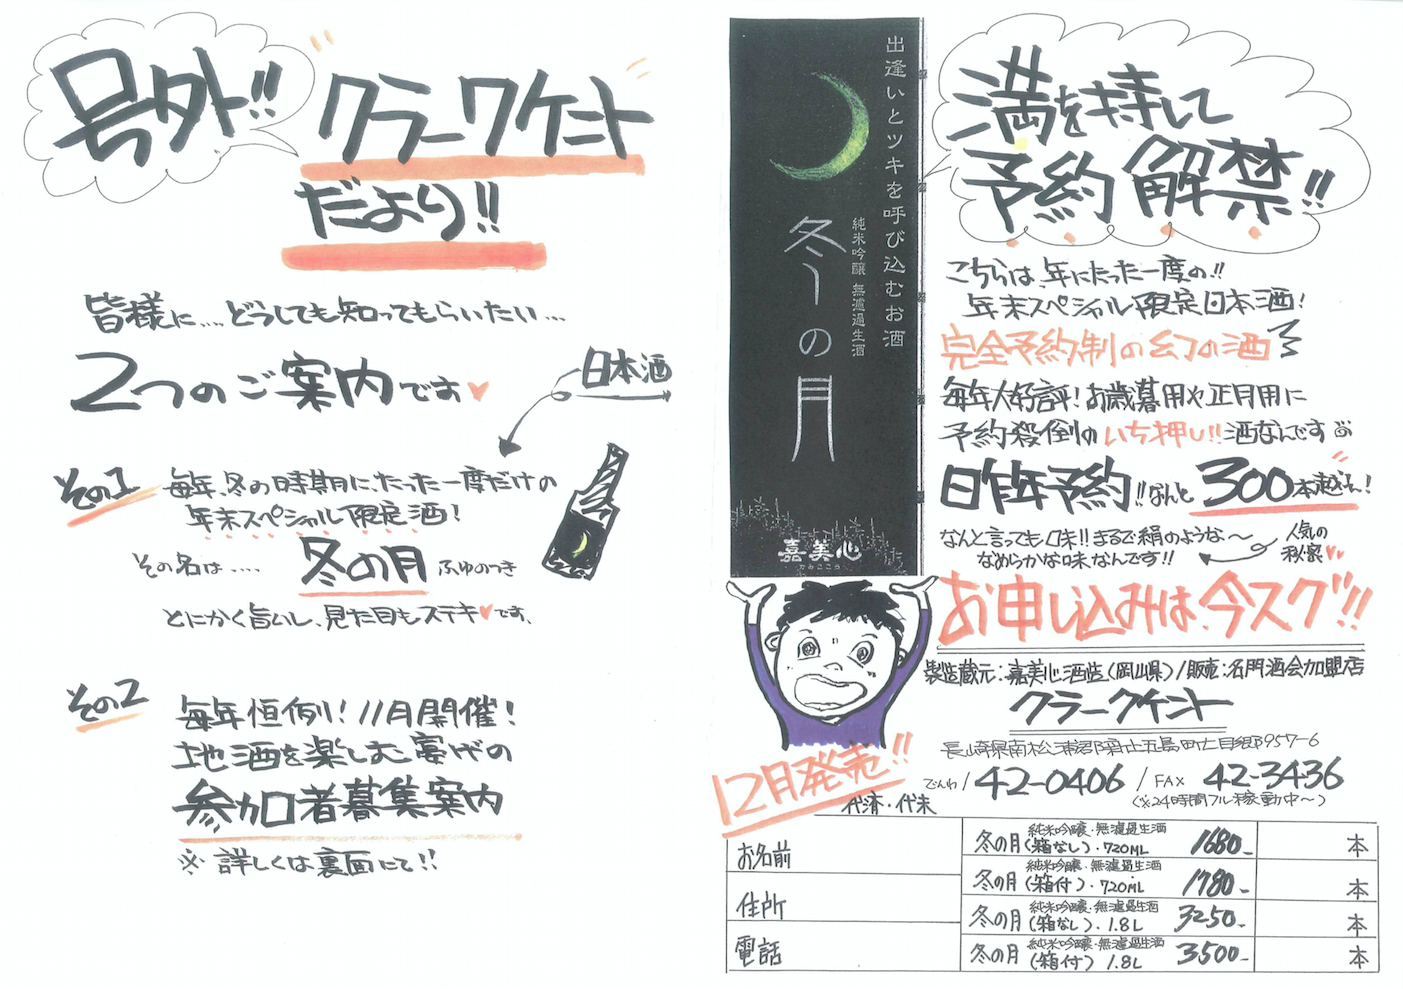 号外!!
クラークケント
だより!!
皆様に....どうしても知ってもらいたい...
2つのご案内です♥
日本酒
その1
毎年、冬の時期に、たった一度だけの
年末スペシャル限定酒!
その名は....
冬の月 ふゆのつき
とにかく旨いし、見た目もステキ♥です、
その2
毎年恒例!11月開催!
地酒を楽しむ宴の
参加者募集案内
※詳しくは裏面にて!!
出逢いとツキを呼び込むお酒
純米吟醸 無濾過生酒
冬の月
嘉美心
かみこころ
満を持して
予約解禁!!
こちらは、年にたった一度の!!
年末スペシャル限定日本酒!
完全予約制の幻の酒
毎年大好評!お歳暮用や正月用に
予約殺倒のいち押し!!酒なんです
昨年予約!!なんと300本越え!
なんと言っても味!!まるで絹のような〜
なめらかな味なんです!!
人気の
秘密♥
お申し込みは、今スグ!!
製造蔵元:嘉美心酒造(岡山県)/販売:名門酒会加盟店
クラークケント
長崎県南松浦郡新上五島町七目郷957-6
でんわ/42-0406/FAX 42-3436
(※24時間フル稼動中〜)
12月発売!!
代済・代未
お名前
住所
電話
純米吟醸・無濾過生酒
冬の月(箱なし)・720ML 1680- 本
純米吟醸・無濾過生酒
冬の月(箱付)・720ML 1780- 本
純米吟醸・無濾過生酒
冬の月(箱なし)・1.8L 3250- 本
純米吟醸・無濾過生酒
冬の月(箱付)1.8L 3500- 本